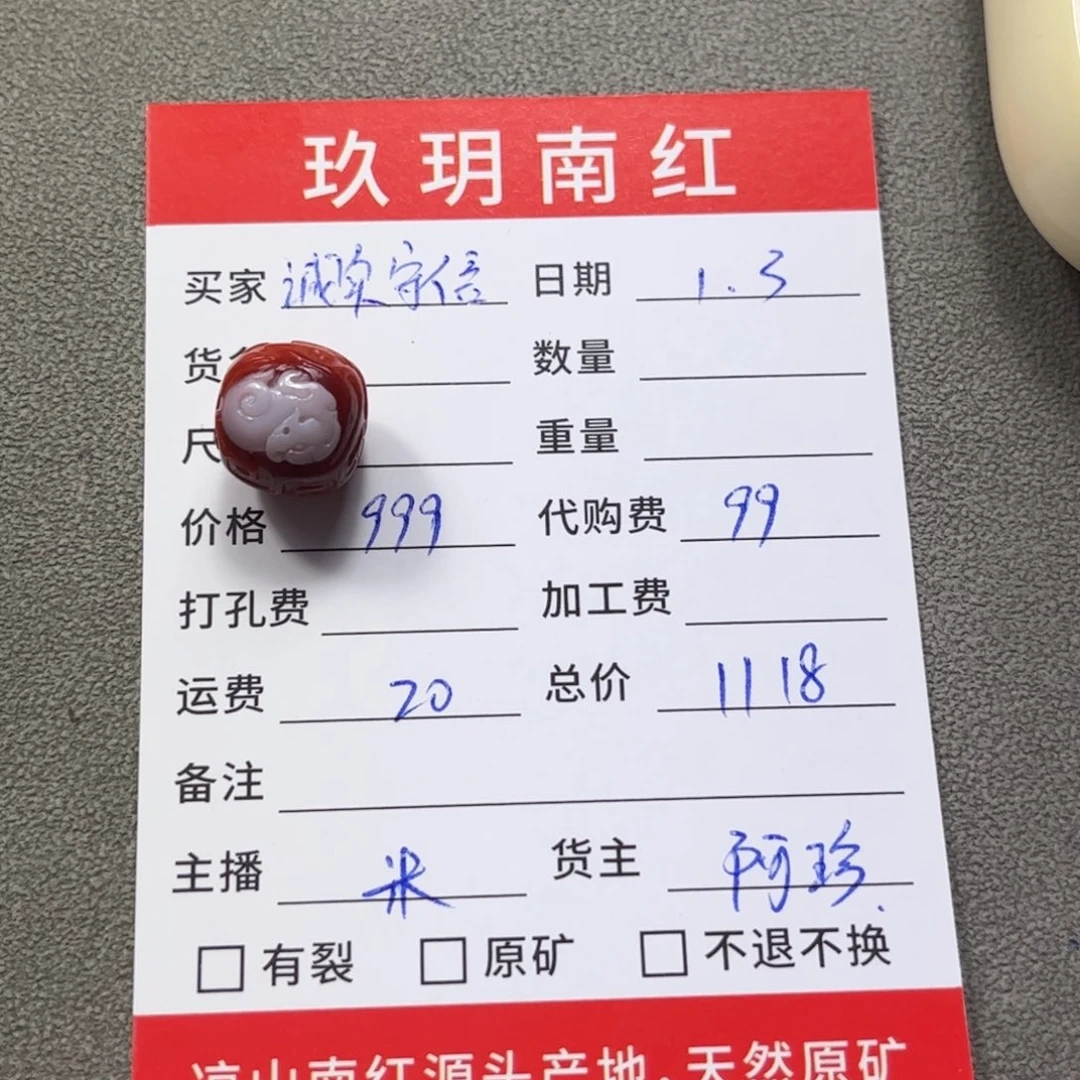 玖玥南红
买家 诚实守信 日期 1.3
货 数量
尺 重量
价格 999 代购费 99
打孔费 加工费
运费 20 总价 1118
备注
主播 米 货主 阿珍.
□ 有裂 □ 原矿 □ 不退不换
凉山南红源头产地,天然原矿